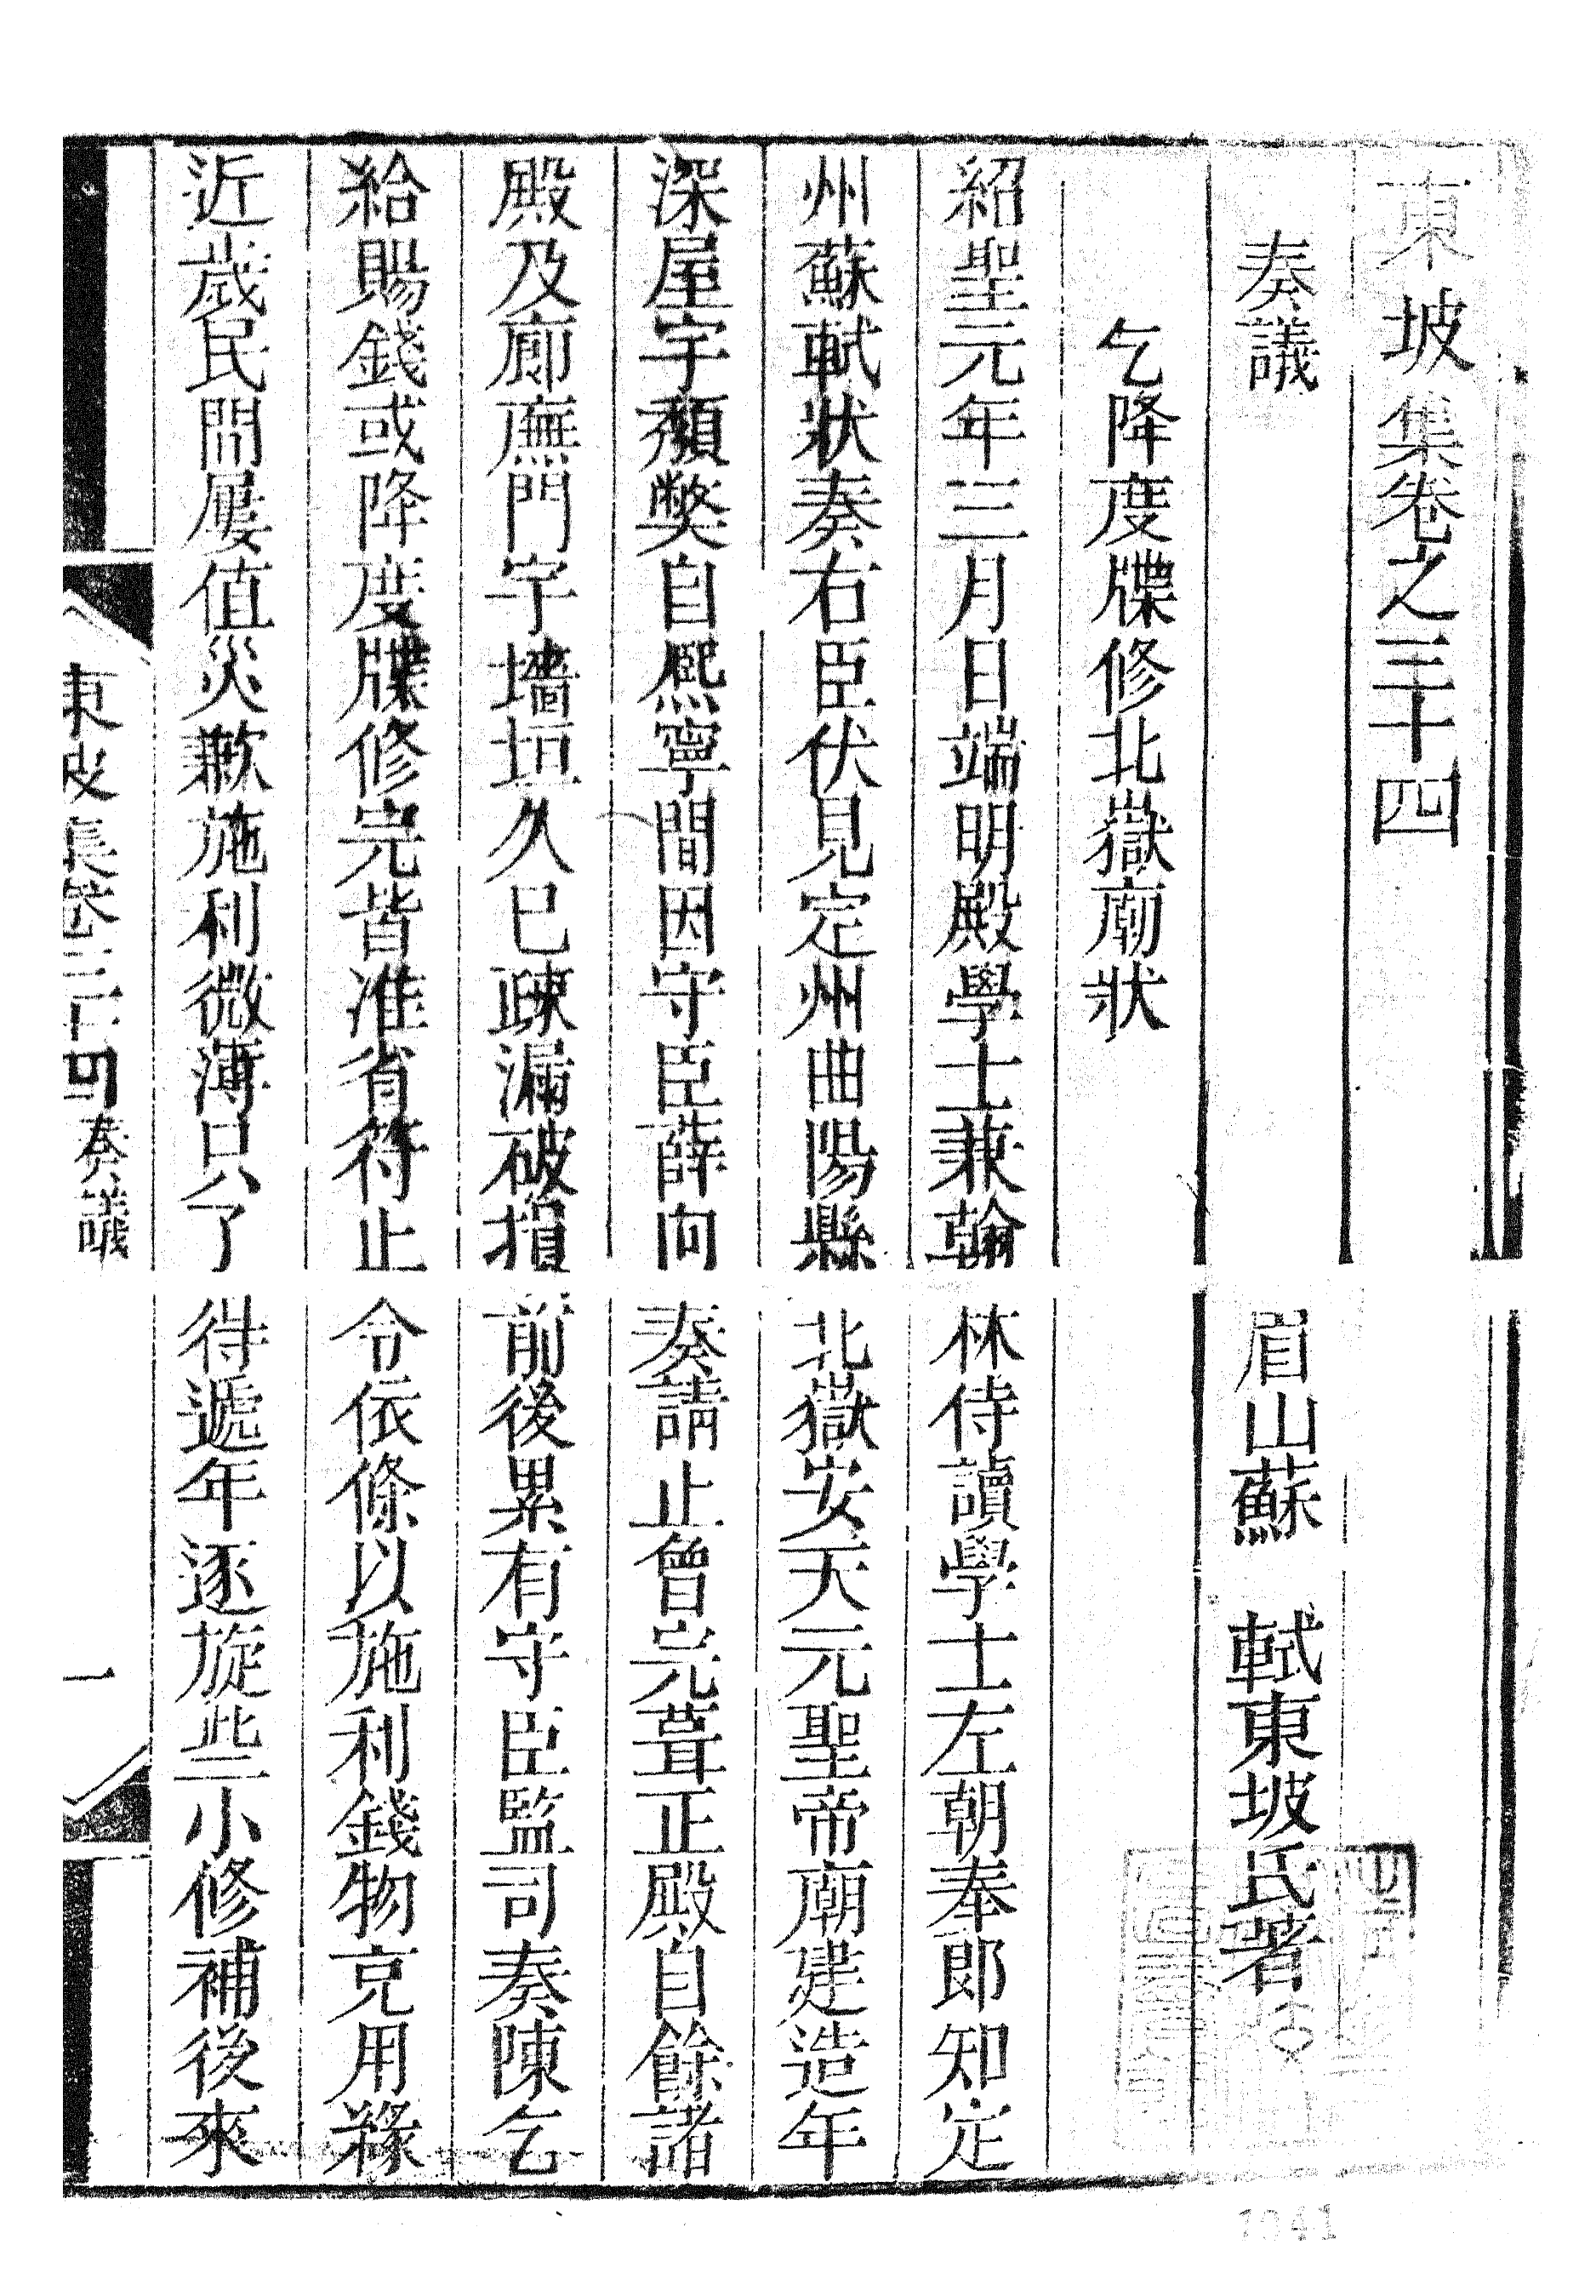 東坡集卷之三十四
奏議　眉山蘇　軾東坡氏著
乞降度牒修北嶽廟狀
紹聖元年三月日端明殿學士兼翰林侍讀學士左朝奉郎知定
州蘇軾狀奏右臣伏見定州曲陽縣北嶽安天元聖帝廟建造年
深屋宇頹獘自熈寧間因守臣薛向奏請止曾完葺正殿自餘諸
殿及廊廡門宇墻垣久已疎漏破損前後累有守臣監司奏陳乞
給賜錢或降度牒修完皆准省符止令依條以施利錢物充用緣
近歲民間屢值災歉施利微薄只了得遞年逐旋些小修補後來
東坡集卷三十四奏議　一
1041